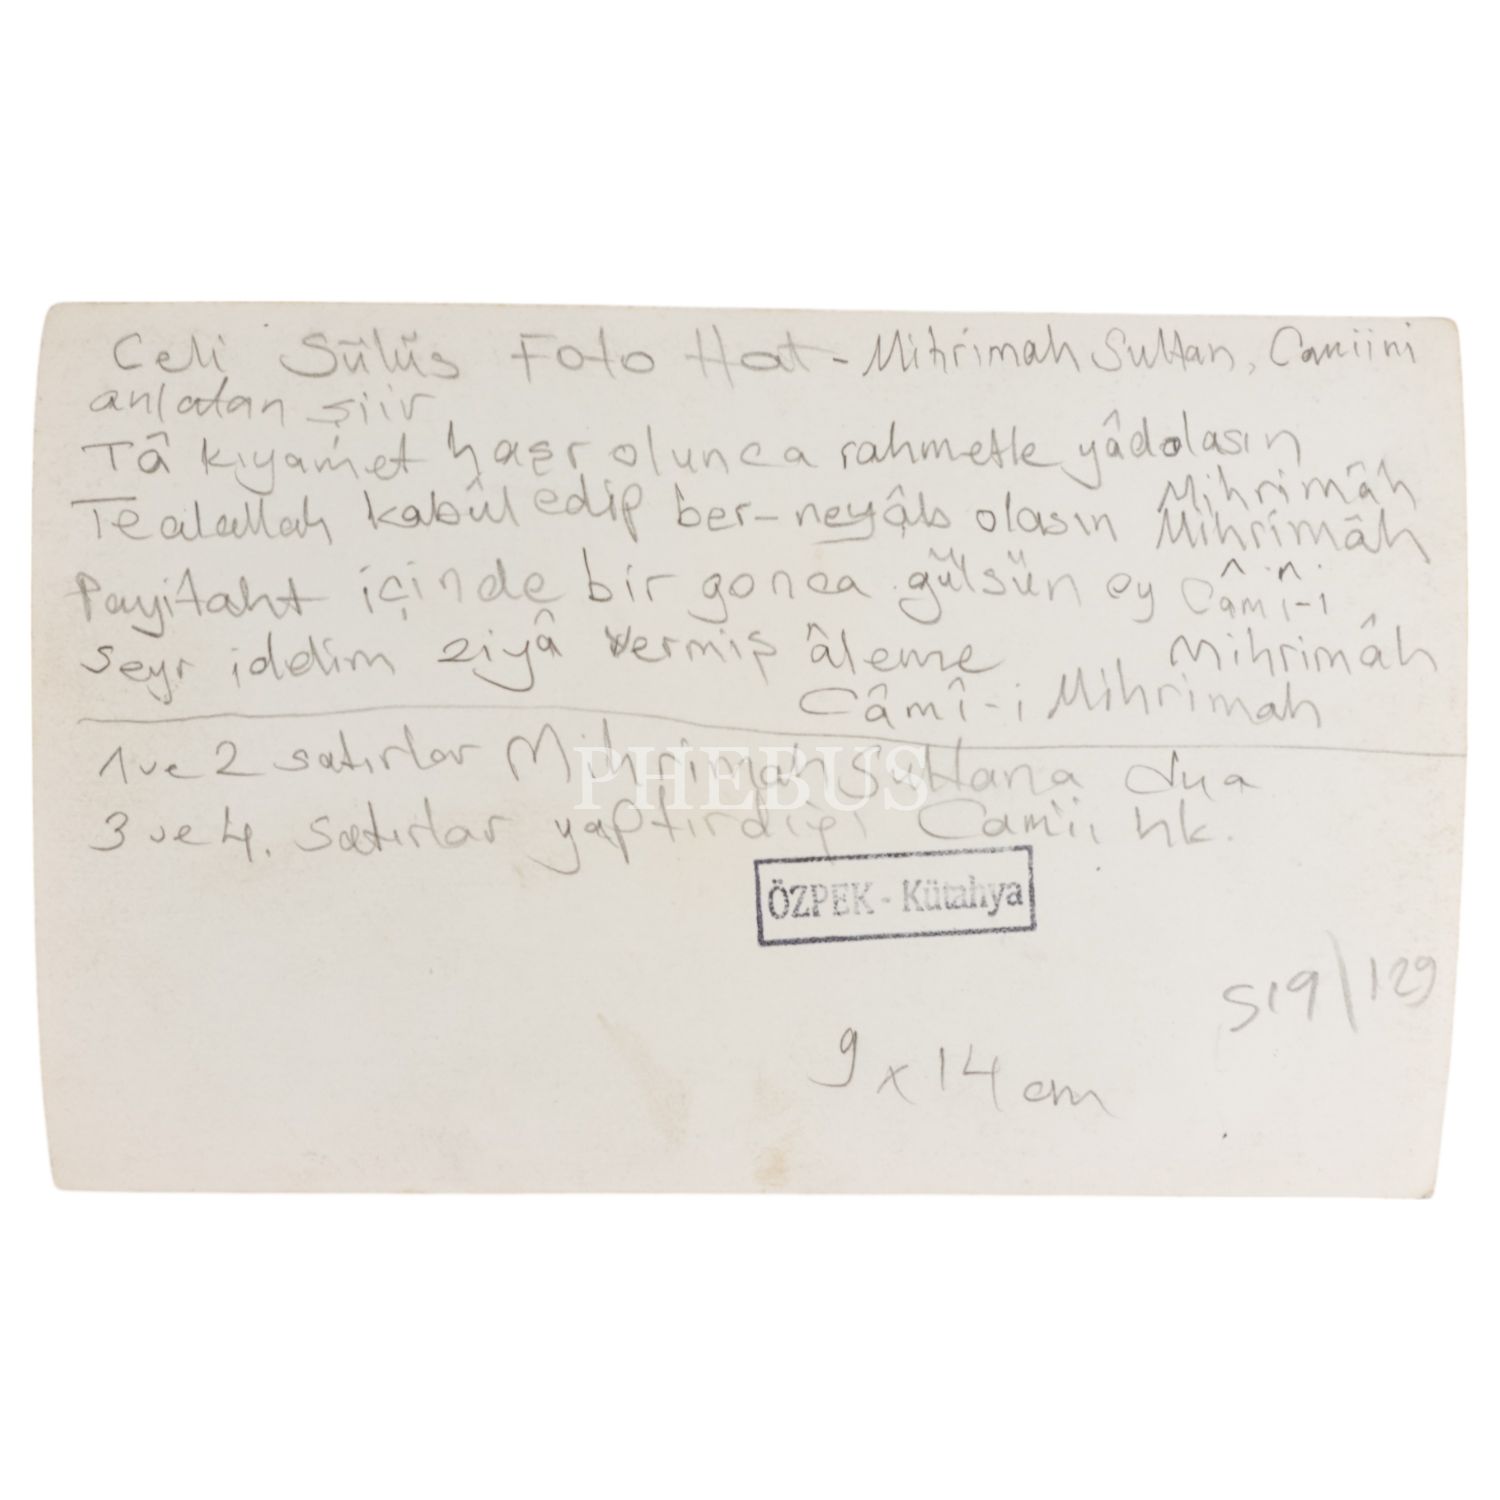 Celi Sülüs Foto Hat - Mihrimah Sultan, Camiini
anlatan şiir
Tâ kıyamet haşr olunca rahmetle yâdolasın
Mihrimâh
Tealallah kabûl edip ber-neyâb olasın Mihrimâh
Payitaht içinde bir gonca gülsün ey Câmî-i
Mihrimâh
seyr iddim ziyâ vermiş âleme
Câmî-i Mihrimah
1 ve 2 satırlar Mihrimah Sultana dua
3 ve 4. satırlar yaptırdığı Camii hk.
PHEBUS
ÖZPEK - Kütahya
S19\129
9 x 14 cm